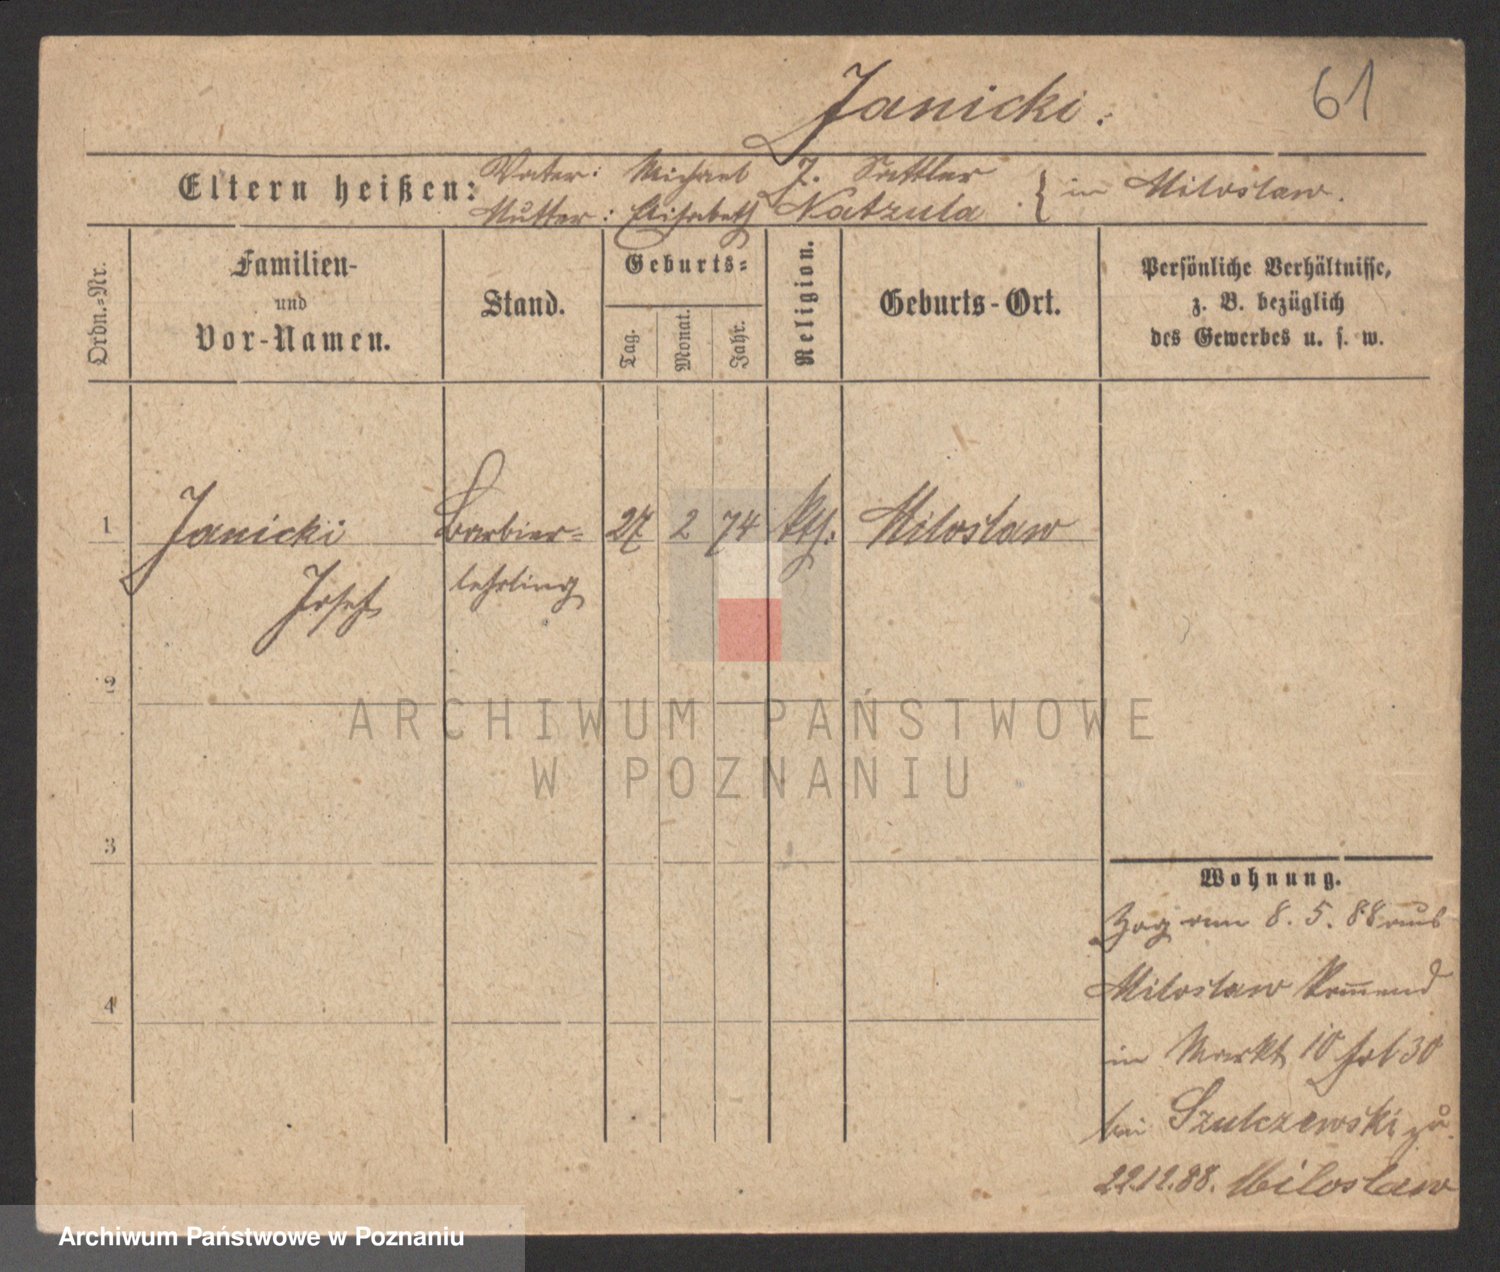 Janicki.
61
Eltern heißen:
Vater: Michael J. Sattler
Mutter: Elisabeth Natzula
} in Miloslaw.
Ordn.=Nr.
Familien-
und
Vor-Namen.
Stand.
Geburts=
Tag.
Monat.
Jahr.
Religion.
Geburts-Ort.
Persönliche Verhältnisse,
z. B. bezüglich
des Gewerbes u. s. w.
1 Janicki Barbier= 27 2 74 kth: Miloslaw
Josef lehrling
2
3
4
ARCHIWUM PAŃSTWOWE
W POZNANIU
Wohnung.
Zog am 8. 5. 88 aus
Miloslaw kommend
in Markt 10
bei Szulczewski zu.
22.12.88. Miloslaw
Archiwum Państwowe w Poznaniu